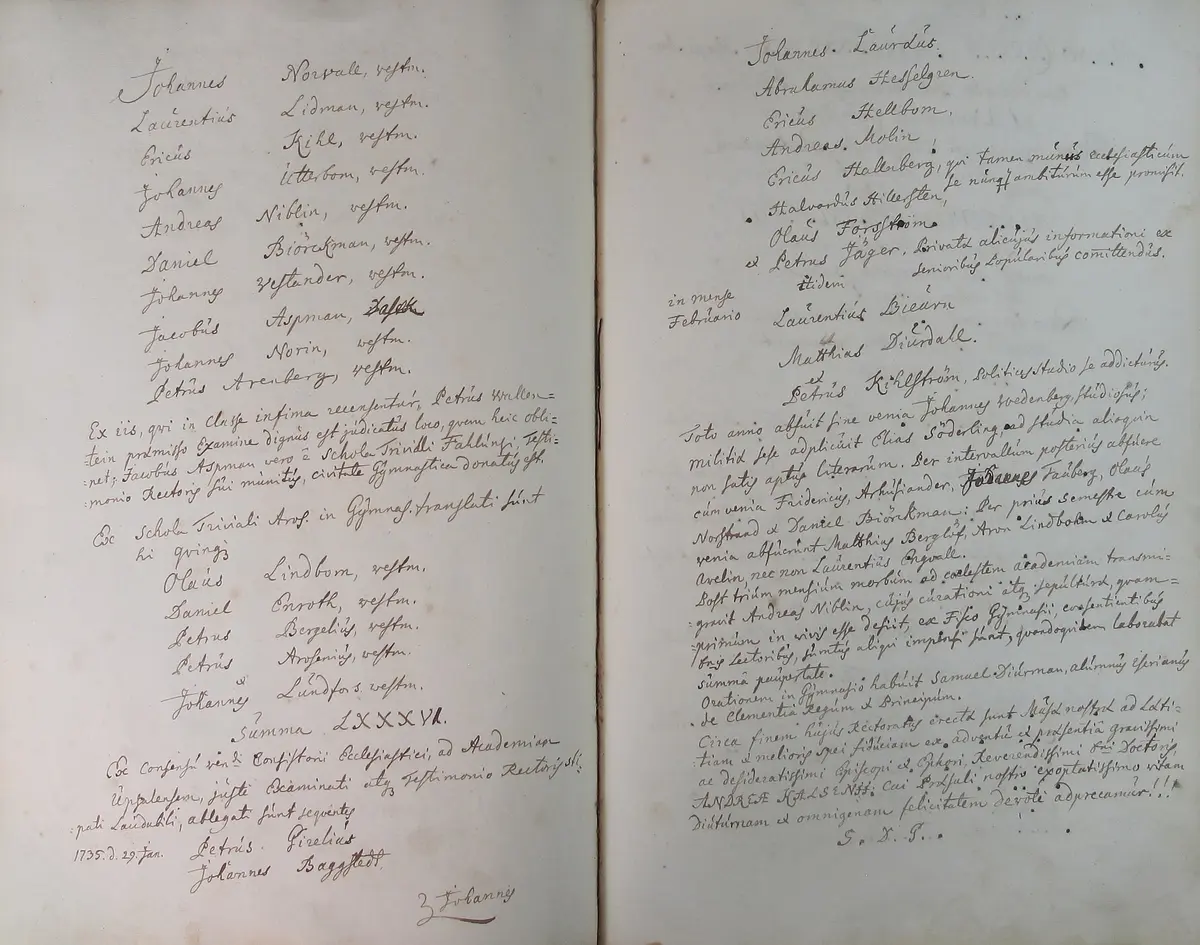 Johannes Norvall, vestm.
Laurentiús Lidman, vestm.
Ericús Kihl, vestm.
Johannes Utterbom, vestm.
Andreas Niblin, vestm.
Daniel Biörckman, vestm.
Johannes Vestander, vestm.
Jacobús Aspman,
Johannes Norin, vestm.
Petrús Arenberg, vestm.
Ex iis, qvi in Classe infima recensentúr, Petrús Wallen=
:tein præmisso Examine dignús est júdicatús loco, qvem heic obti=
:net; Jacobús Aspman vero è Schola Triviali Fahlúnsi, Testi=
:monio Rectoris súi múnitús, civitate Gymnastica donatús est.
Ex Schola Triviali Aros. in Gýmnas. translati súnt
hi qvinqꝫ
Olaús Lindbom, vestm.
Daniel Enroth, vestm.
Petrus Bergelius, vestm.
Petrús Aroseniús, vestm.
Johannes Lúndfors vestm.
Summa LXXXVI.
Ex Consensú ven. Consistorii Ecclesiastici, ad Academiam
Upsalensem, júste Examinati atqꝫ Testimonio Rectoris sti=
:pati Laúdabili, ablegati súnt seqventes
1735. d. 29. Jan. Petrús Gireliús
Johannes Baggstedt.
Johannes
Johannes Laúrdús.
Abrahamus Hesselgren.
Ericús Hellbom.
Andreas Molin
Ericús Hallenberg, qvi tamen múnús ecclesiasticúm
se núnqꝫ ambitúrúm esse promisit.
Halvardús Hillersten,
Olaús Forsström.
& Petrus Jäger. Privatæ alicújús informationi ex
senioribús popúlaribús comittendús.
in mense itidem
Febrúario Laúrentiús Bieúrn
Matthias Diúrdall.
et
Petrús Kihlström, Politices studio se addictúrús.
Toto anno abfúit sine venia Johannes Wedenberg, stúdiosús;
militiæ sese adplicúit Elias Söderling, ad stúdia alioqvin
non satis aptús literarúm. Per intervallúm posteriús abfúere
cúm venia Fridericús, Arhúsiander, Johannes Taúberg, Olaús
Norstrand & Daniel Biörckman. Per priús semestre cúm
venia abfúerúnt Matthias Berglöf, Aron Lindbohm & Carolús
Avelin, nec non Laúrentiús Engvall.
Post triúm mensiúm morbúm ad coelestem academiam transmi=
:gravit Andreas Niblin, cújús cúrationi atqꝫ sepúltúræ, qvam=
:primúm in vivis esse desiit, ex Fisco Gýmnasii, consentientibús
Dnis Lectoribús, súmtús aliqvi impensi súnt, qvandoqvidem laborabat
súmmâ paúpertate.
Orationem in Gýmnasio habúit Samuel Diúrman, alúmnús
de Clementia Regúm & Principúm.
Circa finem hújús Rectoratús erectæ súnt Músæ nostræ ad Læti=
tiam & melioris spei fidúciam ex adventú & præsentiâ gravissimi
ac desideratissimi Episcopi & Ephori, Reverendissimi Doctoris
ANDREÆ KALSENII. Cui Præsuli nostro exoptatissimo vitam
Diútúrnam & omnigenam felicitatem devote adprecamúr!!!
S. D. G.